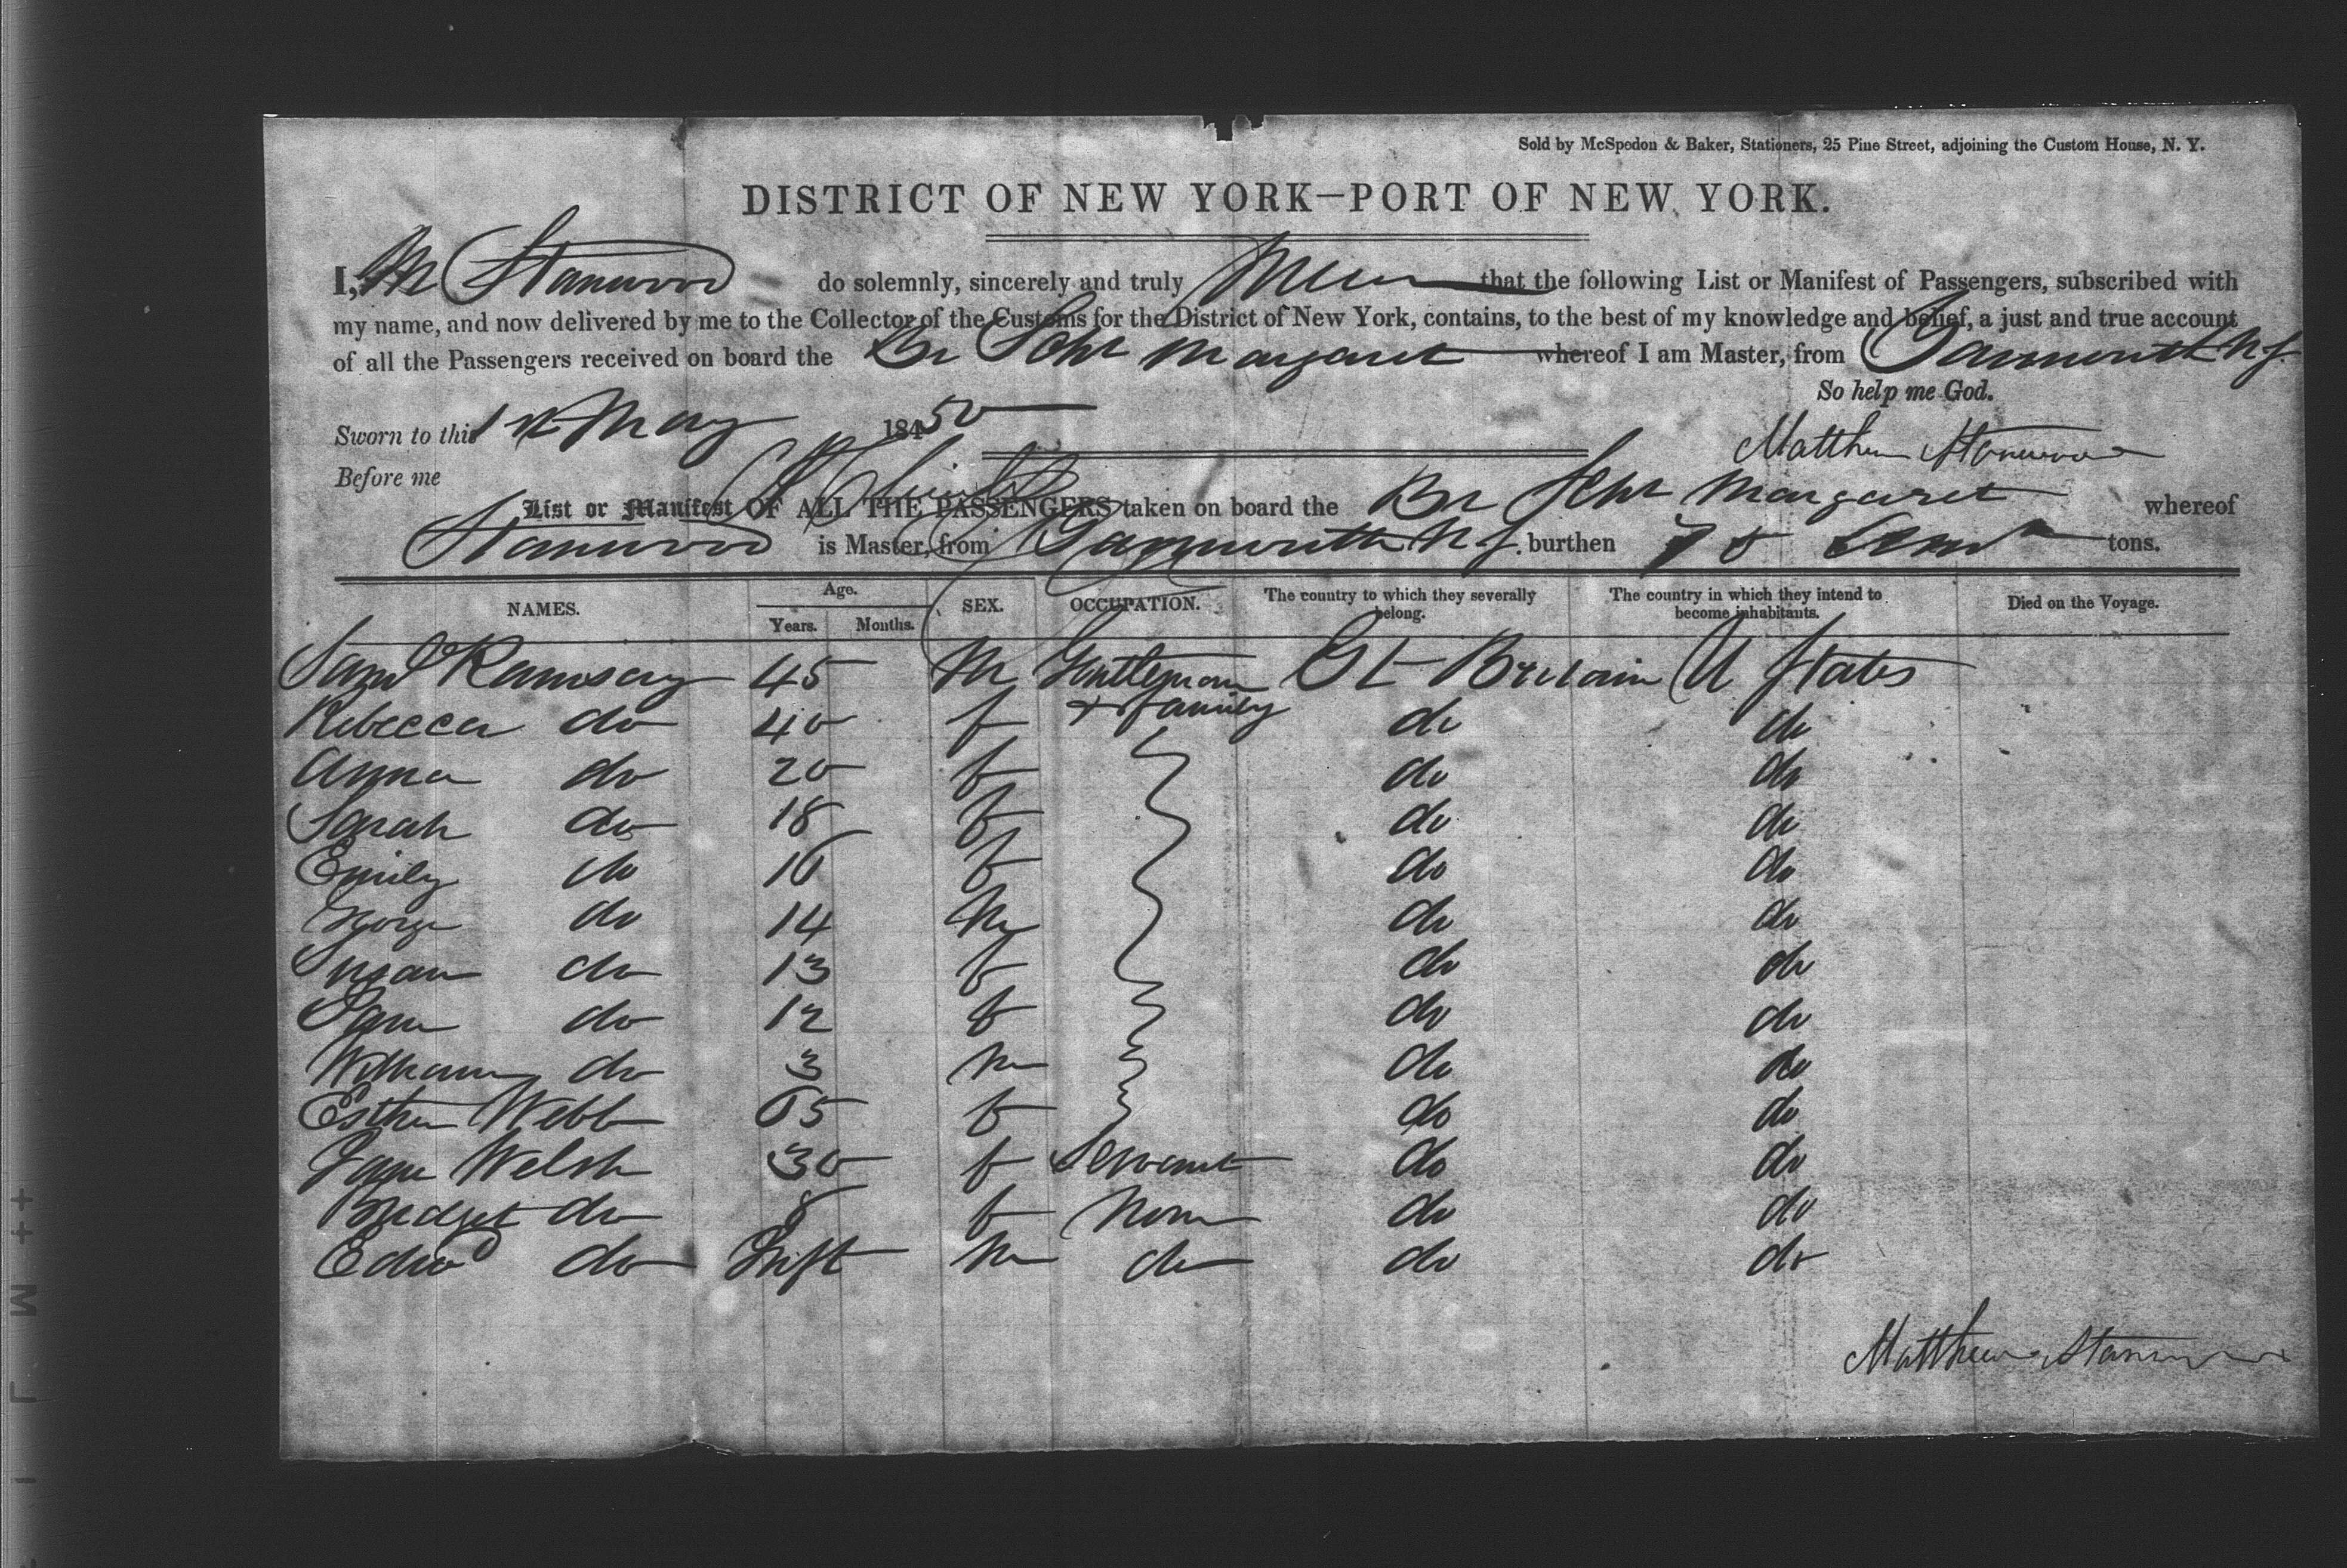 Sold by McSpedon & Baker, Stationers, 25 Pine Street, adjoining the Custom House, N. Y.
DISTRICT OF NEW YORK—PORT OF NEW YORK.
I, M Stanwood do solemnly, sincerely and truly that the following List or Manifest of Passengers, subscribed with
my name, and now delivered by me to the Collector of the Customs for the District of New York, contains, to the best of my knowledge and belief, a just and true account
of all the Passengers received on board the Br Schr Margaret whereof I am Master, from Yarmouth N S.
So help me God.
Sworn to this 1st May 18450
Matthew Stanwood
Before me
List or Manifest OF ALL THE PASSENGERS taken on board the Br Schr Margaret whereof
Stanwood is Master, from Yarmouth N S. burthen tons.
NAMES. Age. Years. Months. SEX. OCCUPATION. The country to which they severally belong. The country in which they intend to become inhabitants. Died on the Voyage.
Saml Ramsay 45 M Gentleman Gt Britain U States
Rebecca do 40 f & family do do
Anna do 20 f do do
Sarah do 18 f do do
Emily do 16 f do do
George do 14 M do do
do 13 f do do
Jane do 12 f do do
William do 3 M do do
Esther Webb 65 f do do
Jane Welsh 30 f Servant do do
Bridget do 8 f None do do
Edwd do Inft M do do do
Matthew Stanwood